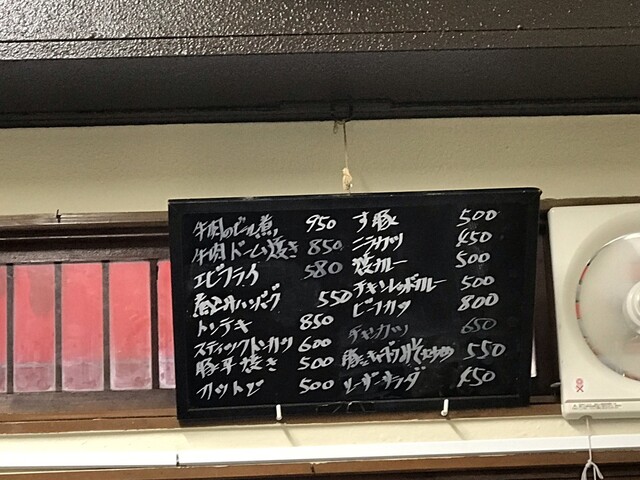 牛肉のビール煮 950
牛肉ドーム焼き 850
エビフライ 580
ハンバーグ 550
トンテキ 850
スティックトンカツ 600
豚平焼き 500
カットビ 500
す豚 500
ニラカツ 450
焼カレー 500
チキンレッドカレー 500
ビフカツ 800
チキンカツ 650
豚 550
シーザーサラダ 450